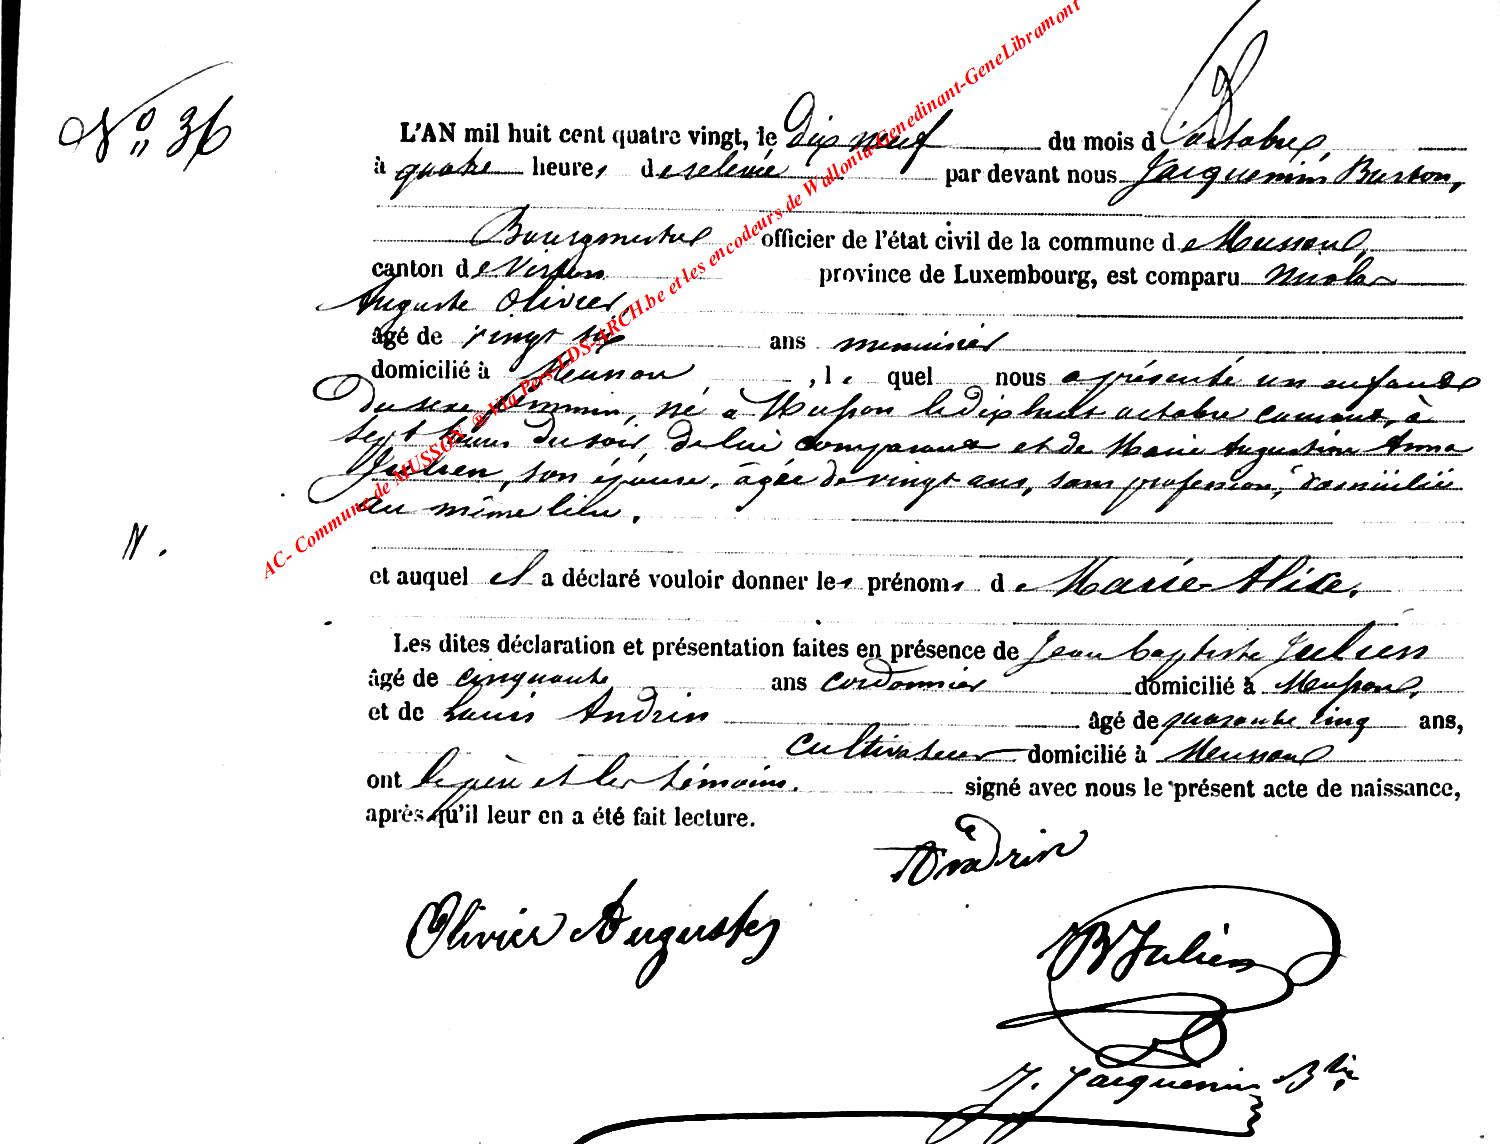 N° 36
L'AN mil huit cent quatre vingt, le dix neuf du mois d'octobre,
à quatre heures de relevée par devant nous Jacquemin Burton,
Bourgmestre officier de l'état civil de la commune de Musson,
canton de Virton province de Luxembourg, est comparu Nicolas
Auguste Olivier,
âgé de vingt six ans menuisier
domicilié à Musson , lequel nous a présenté un enfant
du sexe féminin, né à Musson le dix huit octobre courant, à
sept heures du soir, de lui comparant et de Marie Augustine Anna
Julien, son épouse, âgée de vingt ans, sans profession, domiciliée
au même lieu.
N.
et auquel il a déclaré vouloir donner les prénoms de Marie-Alice.
Les dites déclaration et présentation faites en présence de Jean baptiste Julien
âgé de cinquante ans cordonnier domicilié à Musson,
et de Louis Andrin âgé de quarante cinq ans,
cultivateur domicilié à Musson
ont le père et les témoins. signé avec nous le présent acte de naissance,
après qu'il leur en a été fait lecture.
Andrin
Olivier Auguste
B Julien
J. Jacquemin B.
AC- Commune de MUSSON @ Vita Pers-LDS-ARCH.be et les encodeurs de Wallonia-Genedinant-GeneLibramont